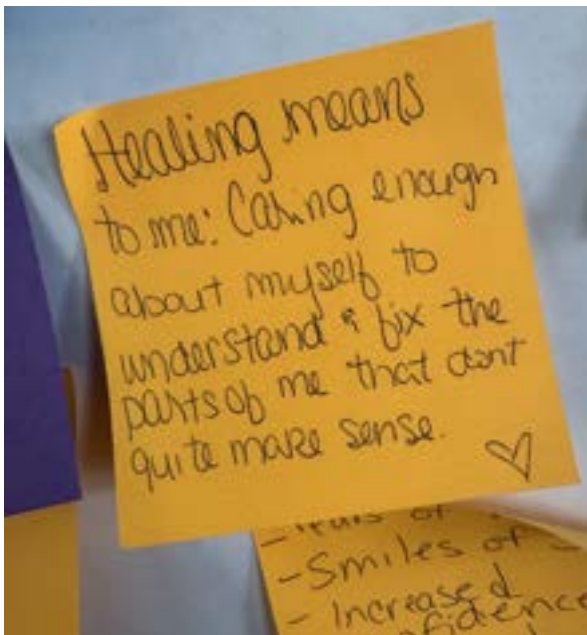 Healing means
to me: Caring enough
about myself to
understand & fix the
parts of me that dont
quite make sense.
- Tears of
- Smiles of
- Increased